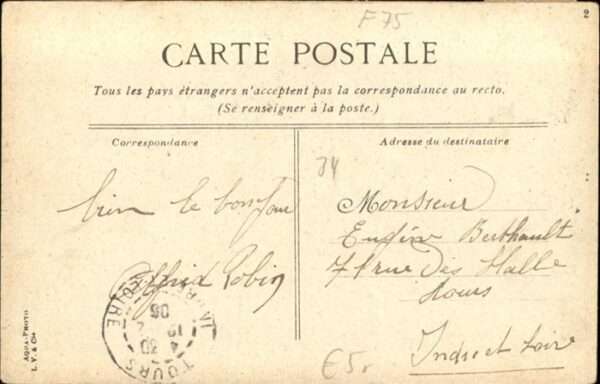 F 75
2
CARTE POSTALE
Tous les pays étrangers n'acceptent pas la correspondance au recto.
(Se renseigner à la poste.)
Correspondance
bien le bonjour
Alfred Robin
TOURS
20
4
19
05
AQUA-PHOTO
L. V. & Cie
Adresse du destinataire
34
Monsieur
Eugène Berthault
71 rue des Halle
Tours
Indre et Loire
€5,